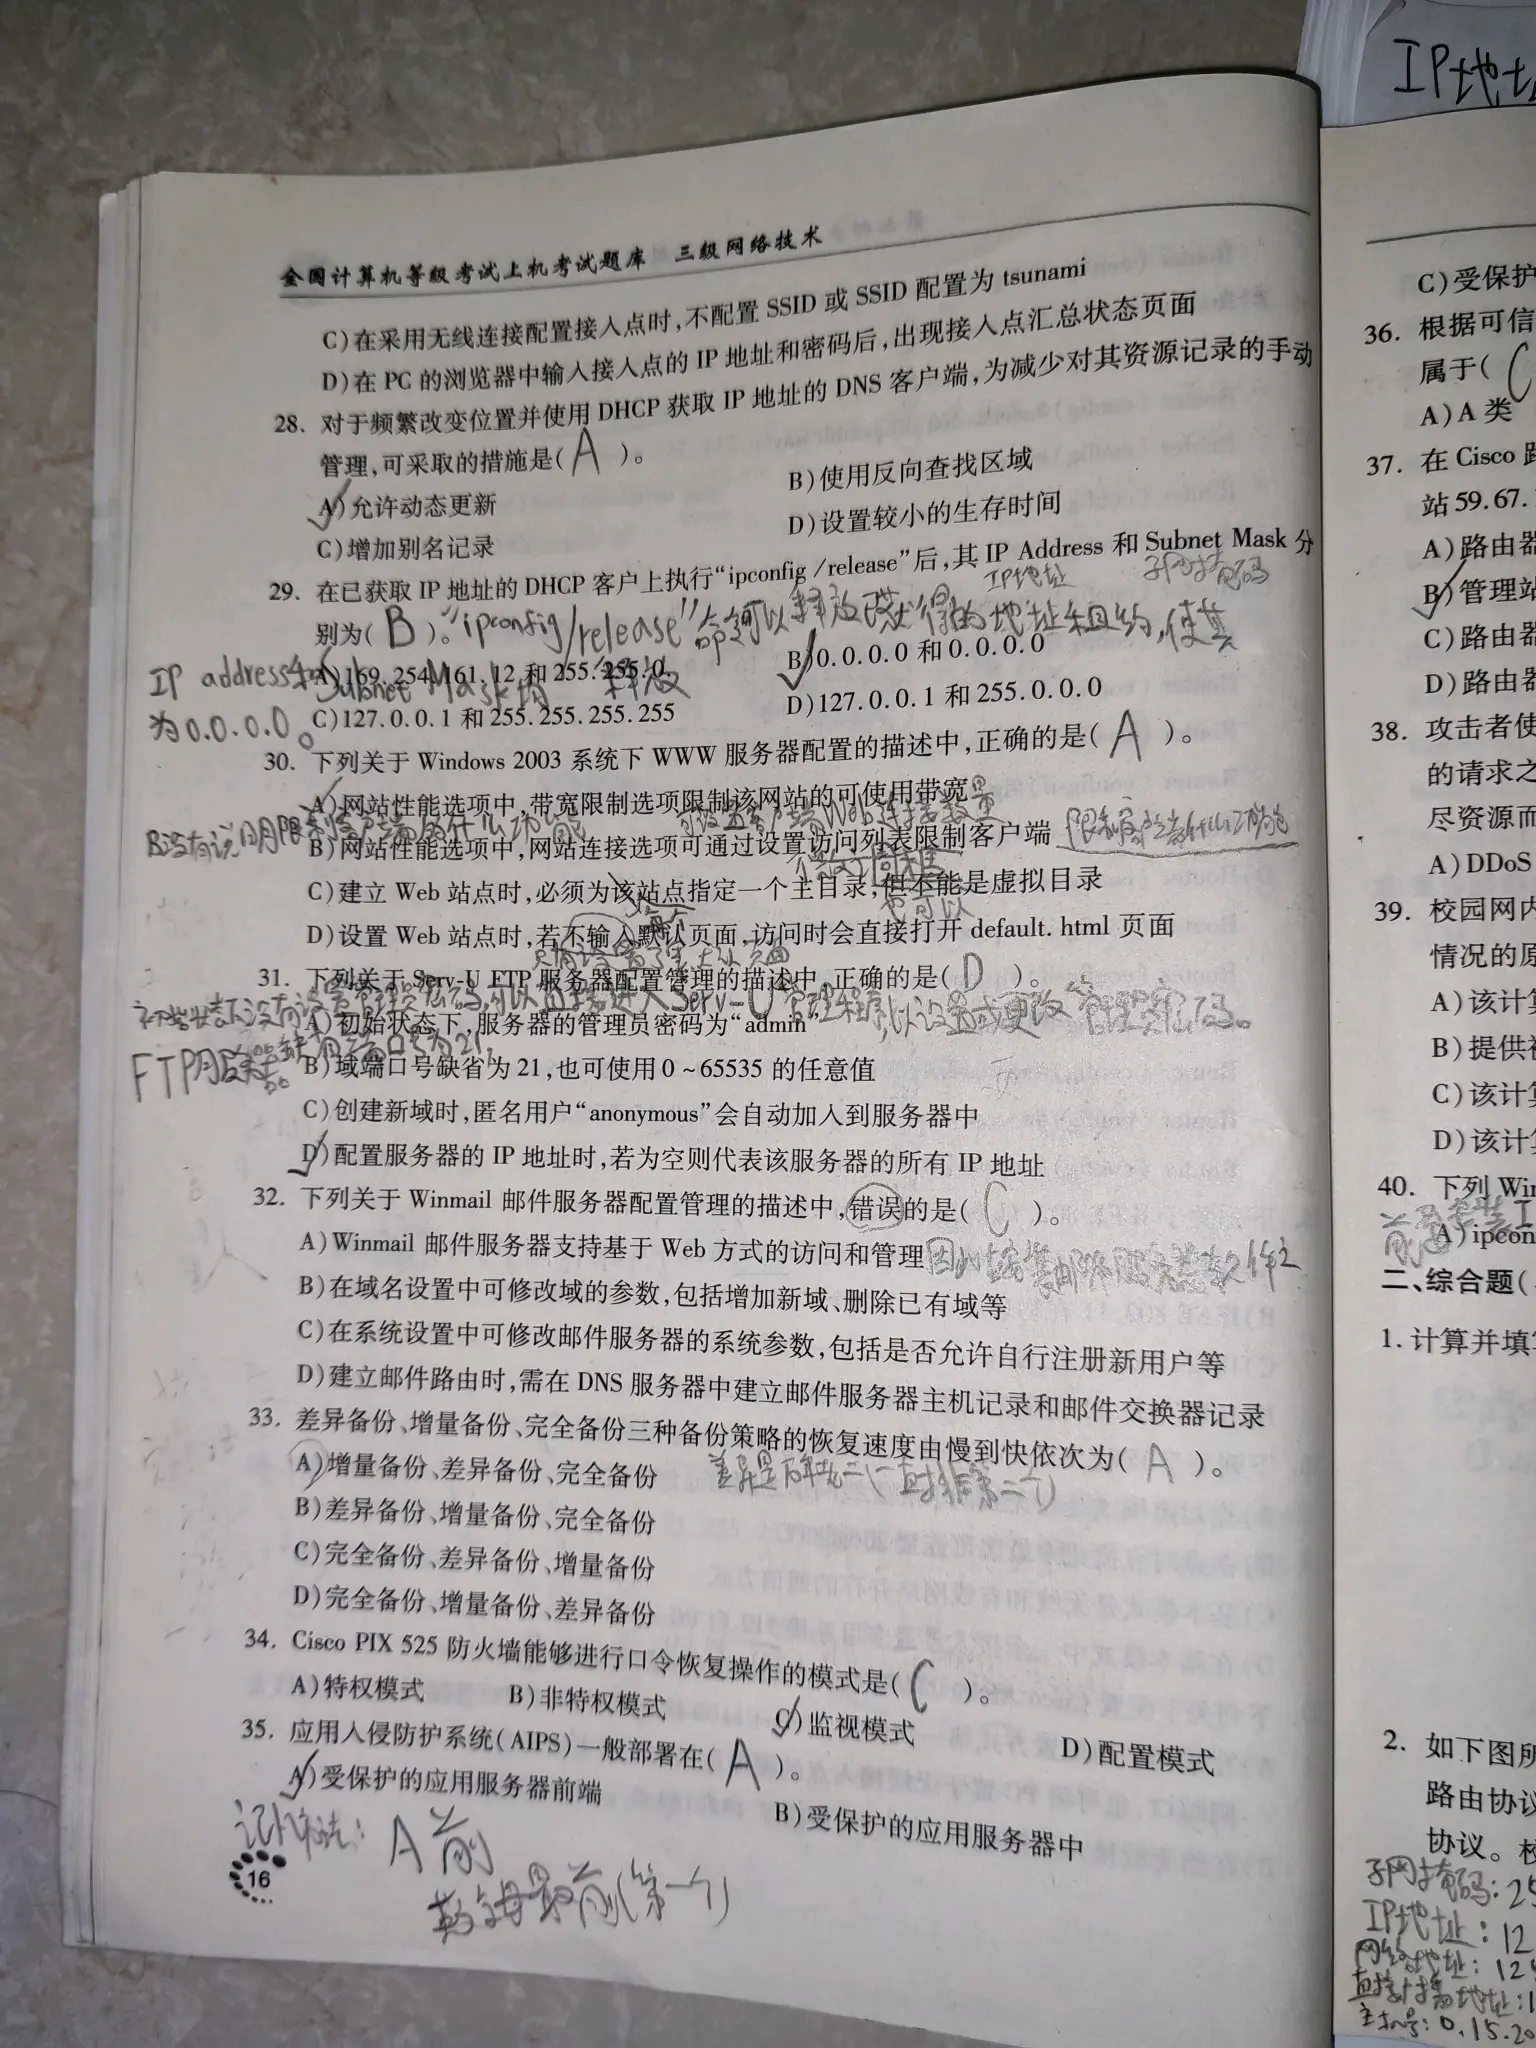 IP地址
全国计算机等级考试上机考试题库 三级网络技术
C)在采用无线连接配置接入点时,不配置 SSID 或 SSID 配置为 tsunami
D)在 PC 的浏览器中输入接入点的 IP 地址和密码后,出现接入点汇总状态页面
28. 对于频繁改变位置并使用 DHCP 获取 IP 地址的 DNS 客户端,为减少对其资源记录的手动
管理,可采取的措施是( A )。
A)允许动态更新
B)使用反向查找区域
C)增加别名记录
D)设置较小的生存时间
29. 在已获取 IP 地址的 DHCP 客户上执行“ipconfig /release”后,其 IP Address 和 Subnet Mask 分
IP地址 子网掩码
别为( B )。“ipconfig/release”命令可以释放已获得的地址租约,使其
IP address和Subnet Mask均 释放
为0.0.0.0。
A)169.254.161.12 和 255.255.0.
B)0.0.0.0 和 0.0.0.0
C)127.0.0.1 和 255.255.255.255
D)127.0.0.1 和 255.0.0.0
30. 下列关于 Windows 2003 系统下 WWW 服务器配置的描述中,正确的是( A )。
A)网站性能选项中,带宽限制选项限制该网站的可使用带宽
B没有说明限制客户端的什么功能
可设置客户端Web连接数量
B)网站性能选项中,网站连接选项可通过设置访问列表限制客户端
限制客户端什么功能
C)建立 Web 站点时,必须为该站点指定一个主目录,但不能是虚拟目录
也可以
D)设置 Web 站点时,若不输入默认页面,访问时会直接打开 default. html 页面
只有设置了默认页面
31. 下列关于 Serv-U FTP 服务器配置管理的描述中,正确的是( D )。
初始状态下没有设置管理员密码,可以直接进入Serv-U管理程序,以设置或更改管理员密码。
A)初始状态下,服务器的管理员密码为“admin”
FTP服务器缺省端口号为21,
B)域端口号缺省为 21,也可使用 0 ~ 65535 的任意值
C)创建新域时,匿名用户“anonymous”会自动加入到服务器中
D)配置服务器的 IP 地址时,若为空则代表该服务器的所有 IP 地址
32. 下列关于 Winmail 邮件服务器配置管理的描述中,错误的是( C )。
A)Winmail 邮件服务器支持基于 Web 方式的访问和管理
B)在域名设置中可修改域的参数,包括增加新域、删除已有域等
C)在系统设置中可修改邮件服务器的系统参数,包括是否允许自行注册新用户等
D)建立邮件路由时,需在 DNS 服务器中建立邮件服务器主机记录和邮件交换器记录
33. 差异备份、增量备份、完全备份三种备份策略的恢复速度由慢到快依次为( A )。
A)增量备份、差异备份、完全备份
B)差异备份、增量备份、完全备份
C)完全备份、差异备份、增量备份
D)完全备份、增量备份、差异备份
34. Cisco PIX 525 防火墙能够进行口令恢复操作的模式是( C )。
A)特权模式
B)非特权模式
C)监视模式
D)配置模式
35. 应用入侵防护系统(AIPS)一般部署在( A )。
A)受保护的应用服务器前端
B)受保护的应用服务器中
记忆法: A 前
英文字母最前(第一个)
16
C)受保护
36. 根据可信
属于( C
A)A 类
37. 在 Cisco 路
站 59.67.
A)路由器
B)管理站
C)路由器
D)路由器
38. 攻击者使
的请求之
尽资源而
A)DDoS
39. 校园网内
情况的原
A)该计算
B)提供
C)该计算
D)该计算
40. 下列 Win
A)ipcon
二、综合题(
1. 计算并填写
2. 如下图所
路由协议
协议。校
子网掩码: 25
IP地址: 12
网络地址: 12
直接广播地址: 1
主机号: 0.15.20